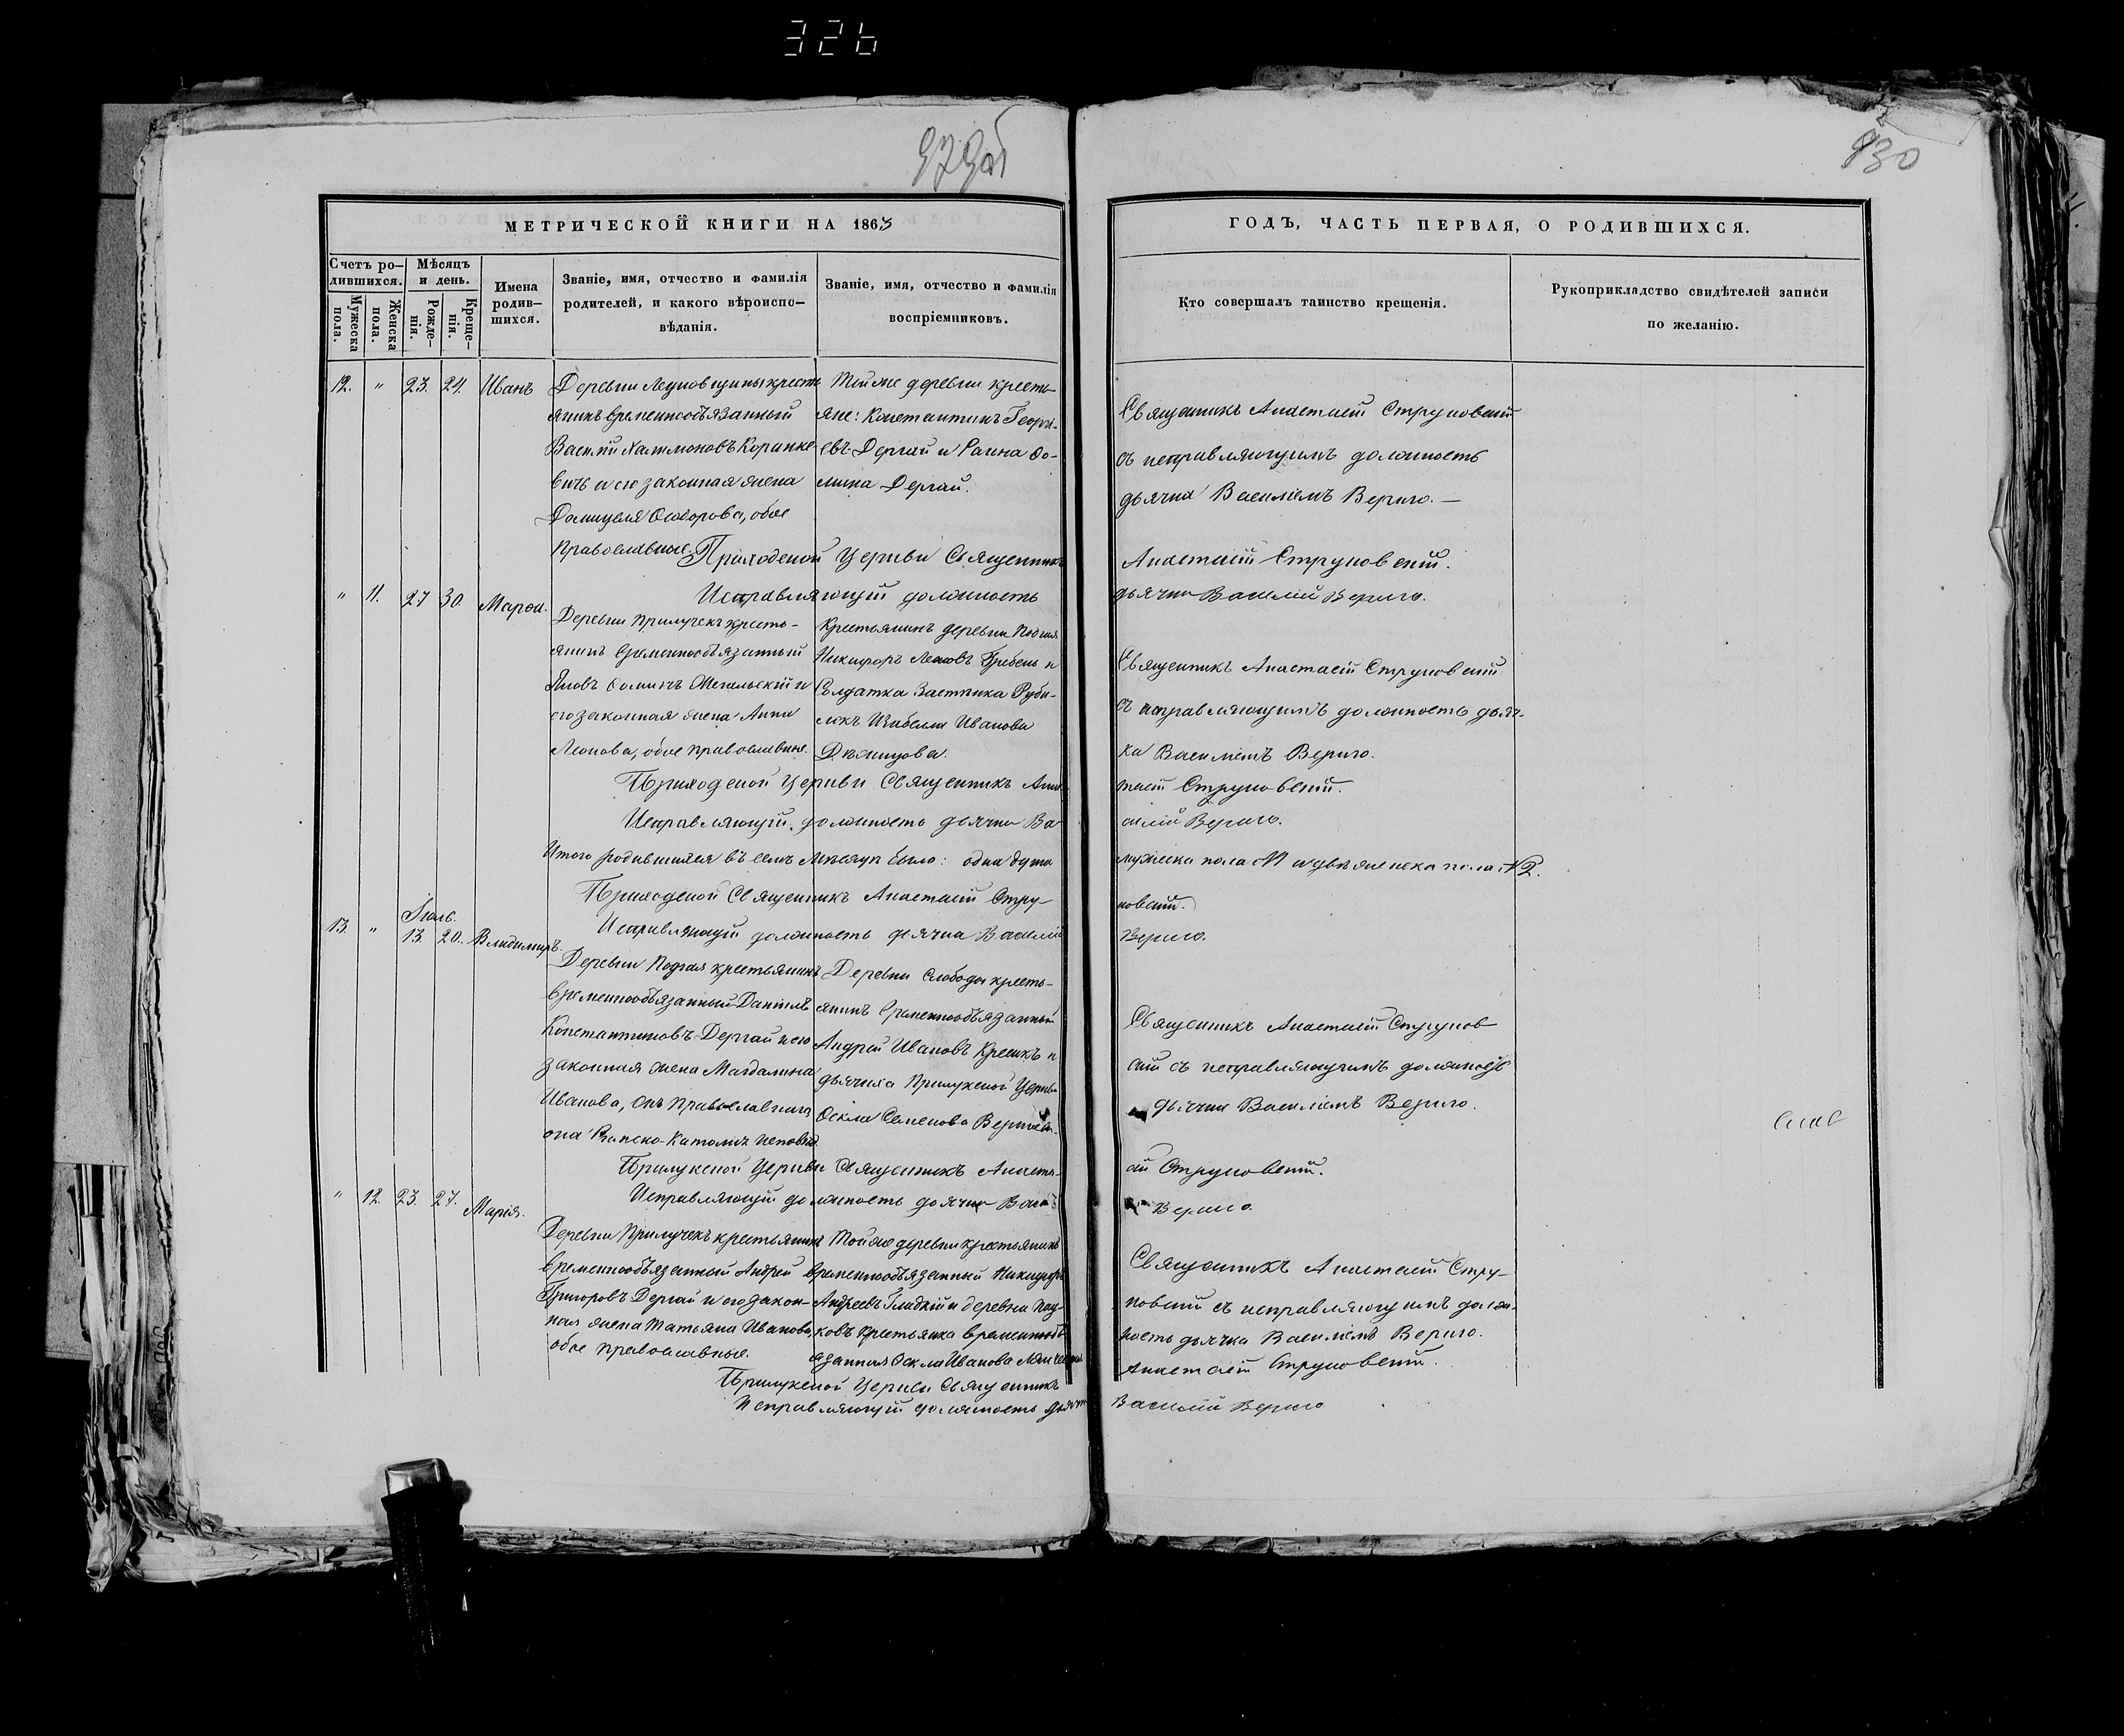 326
929об
930
МЕТРИЧЕСКОЙ КНИГИ НА 1863
ГОДЪ, ЧАСТЬ ПЕРВАЯ, О РОДИВШИХСЯ.
Счетъ ро-
дившихся.
Мужеска
пола.
Женска
пола.
Мѣсяцъ
и день.
Рожде-
нія.
Креще-
нія.
Имена
родив-
шихся.
Званіе, имя, отчество и фамилія
родителей, и какого вѣроиспо-
вѣданія.
Званіе, имя, отчество и фамилія
воспріемниковъ.
Кто совершалъ таинство крещенія.
Рукоприкладство свидѣтелей записи
по желанію.
12. " 23. 24. Иванъ
Деревни крестья
янинъ временнообязанный
Василій
вичъ и его законная жена
обое
Православные.
Той же деревни кресть-
яне: Константинъ Георгі-
евъ Дергай и Ѳо-
мина Дергай.
Священникъ Анастасій Струковскій
съ исправляющимъ должность
дьячка Василіемъ Вериго.
Приходской Церкви Священникъ
Анастасій Струковскій.
Исправляющій должность
дьячка Василій Вериго.
" 11. 27 30. Марѳа.
Деревни Прилучекъ кресть-
янинъ временнообязанный
Яковъ Ѳоминъ и
его законная жена Анна
обое православные.
Крестьянинъ деревни Подгая
Никифоръ Гребень и
Солдатка
Иванова
Священникъ Анастасій Струковскій
съ исправляющимъ должность дьяч-
ка Василіемъ Вериго.
Приходской Церкви Священникъ Анас
тасій Струковскій.
Исправляющій должность дьячка Ва-
силій Вериго.
Итого родившихся въ семъ мѣсяцѣ было: одна душа
мужеска пола №1 и двѣ женска пола №2.
Приходской Священникъ Анастасій Стру-
ковскій.
Исправляющій должность дьячка Василій
Вериго.
Іюль.
13. " 13. 20. Владимиръ.
Деревни Подгая крестьянинъ
временнообязанный Даніилъ
Константиновъ Дергай и его
законная жена Магдалина
Иванова, онъ Православнаго
она Римско-Католич. исповѣд.
Деревни Слободы кресть-
янинъ временнообязанный
Андрей Ивановъ и
дьячиха Прилукской Церкви
Ѳекла Семенова
Священникъ Анастасій Струков
скій съ исправляющимъ должность
дьячка Василіемъ Вериго.
Прилукской Церкви Священникъ Анаста-
сій Струковскій.
Исправляющій должность дьячка Васи
Вериго.
" 12. 23. 27. Марія.
Деревни Прилучекъ крестьянинъ
временнообязанный Андрей
Григоровъ Дергай и его закон-
ная жена Татьяна Иванова
обое православные.
Той же деревни крестьянинъ
временнообязанный Никифоръ
Андреевъ Гладкій и деревни
ковъ крестьянка временнооб
язанная Ѳекла Иванова
Священникъ Анастасій Стру-
ковскій съ исправляющимъ долж-
ность дьячка Василіемъ Вериго.
Прилукской Церкви Священникъ
Анастасій Струковскій.
Исправляющій должность дьячка
Василій Вериго